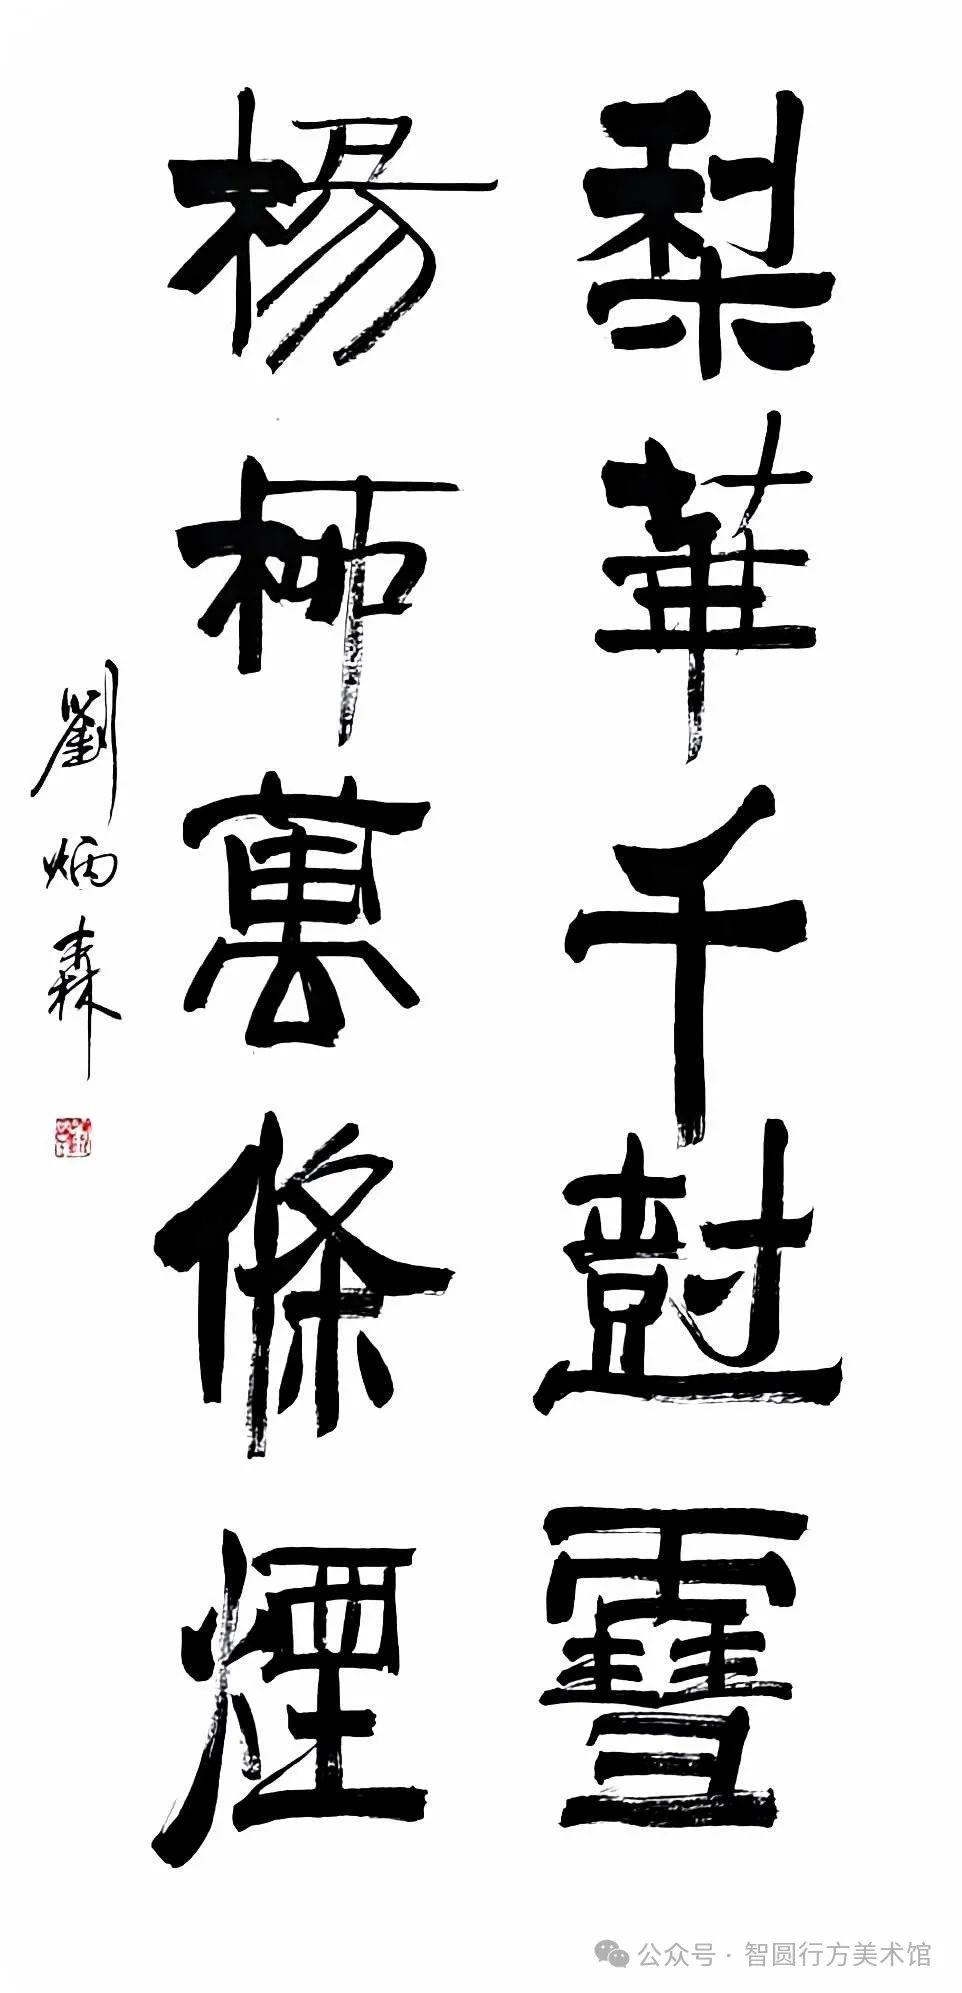 梨華千尌雪
楊柳萬條煙
劉炳森
公众号 · 智圆行方美术馆